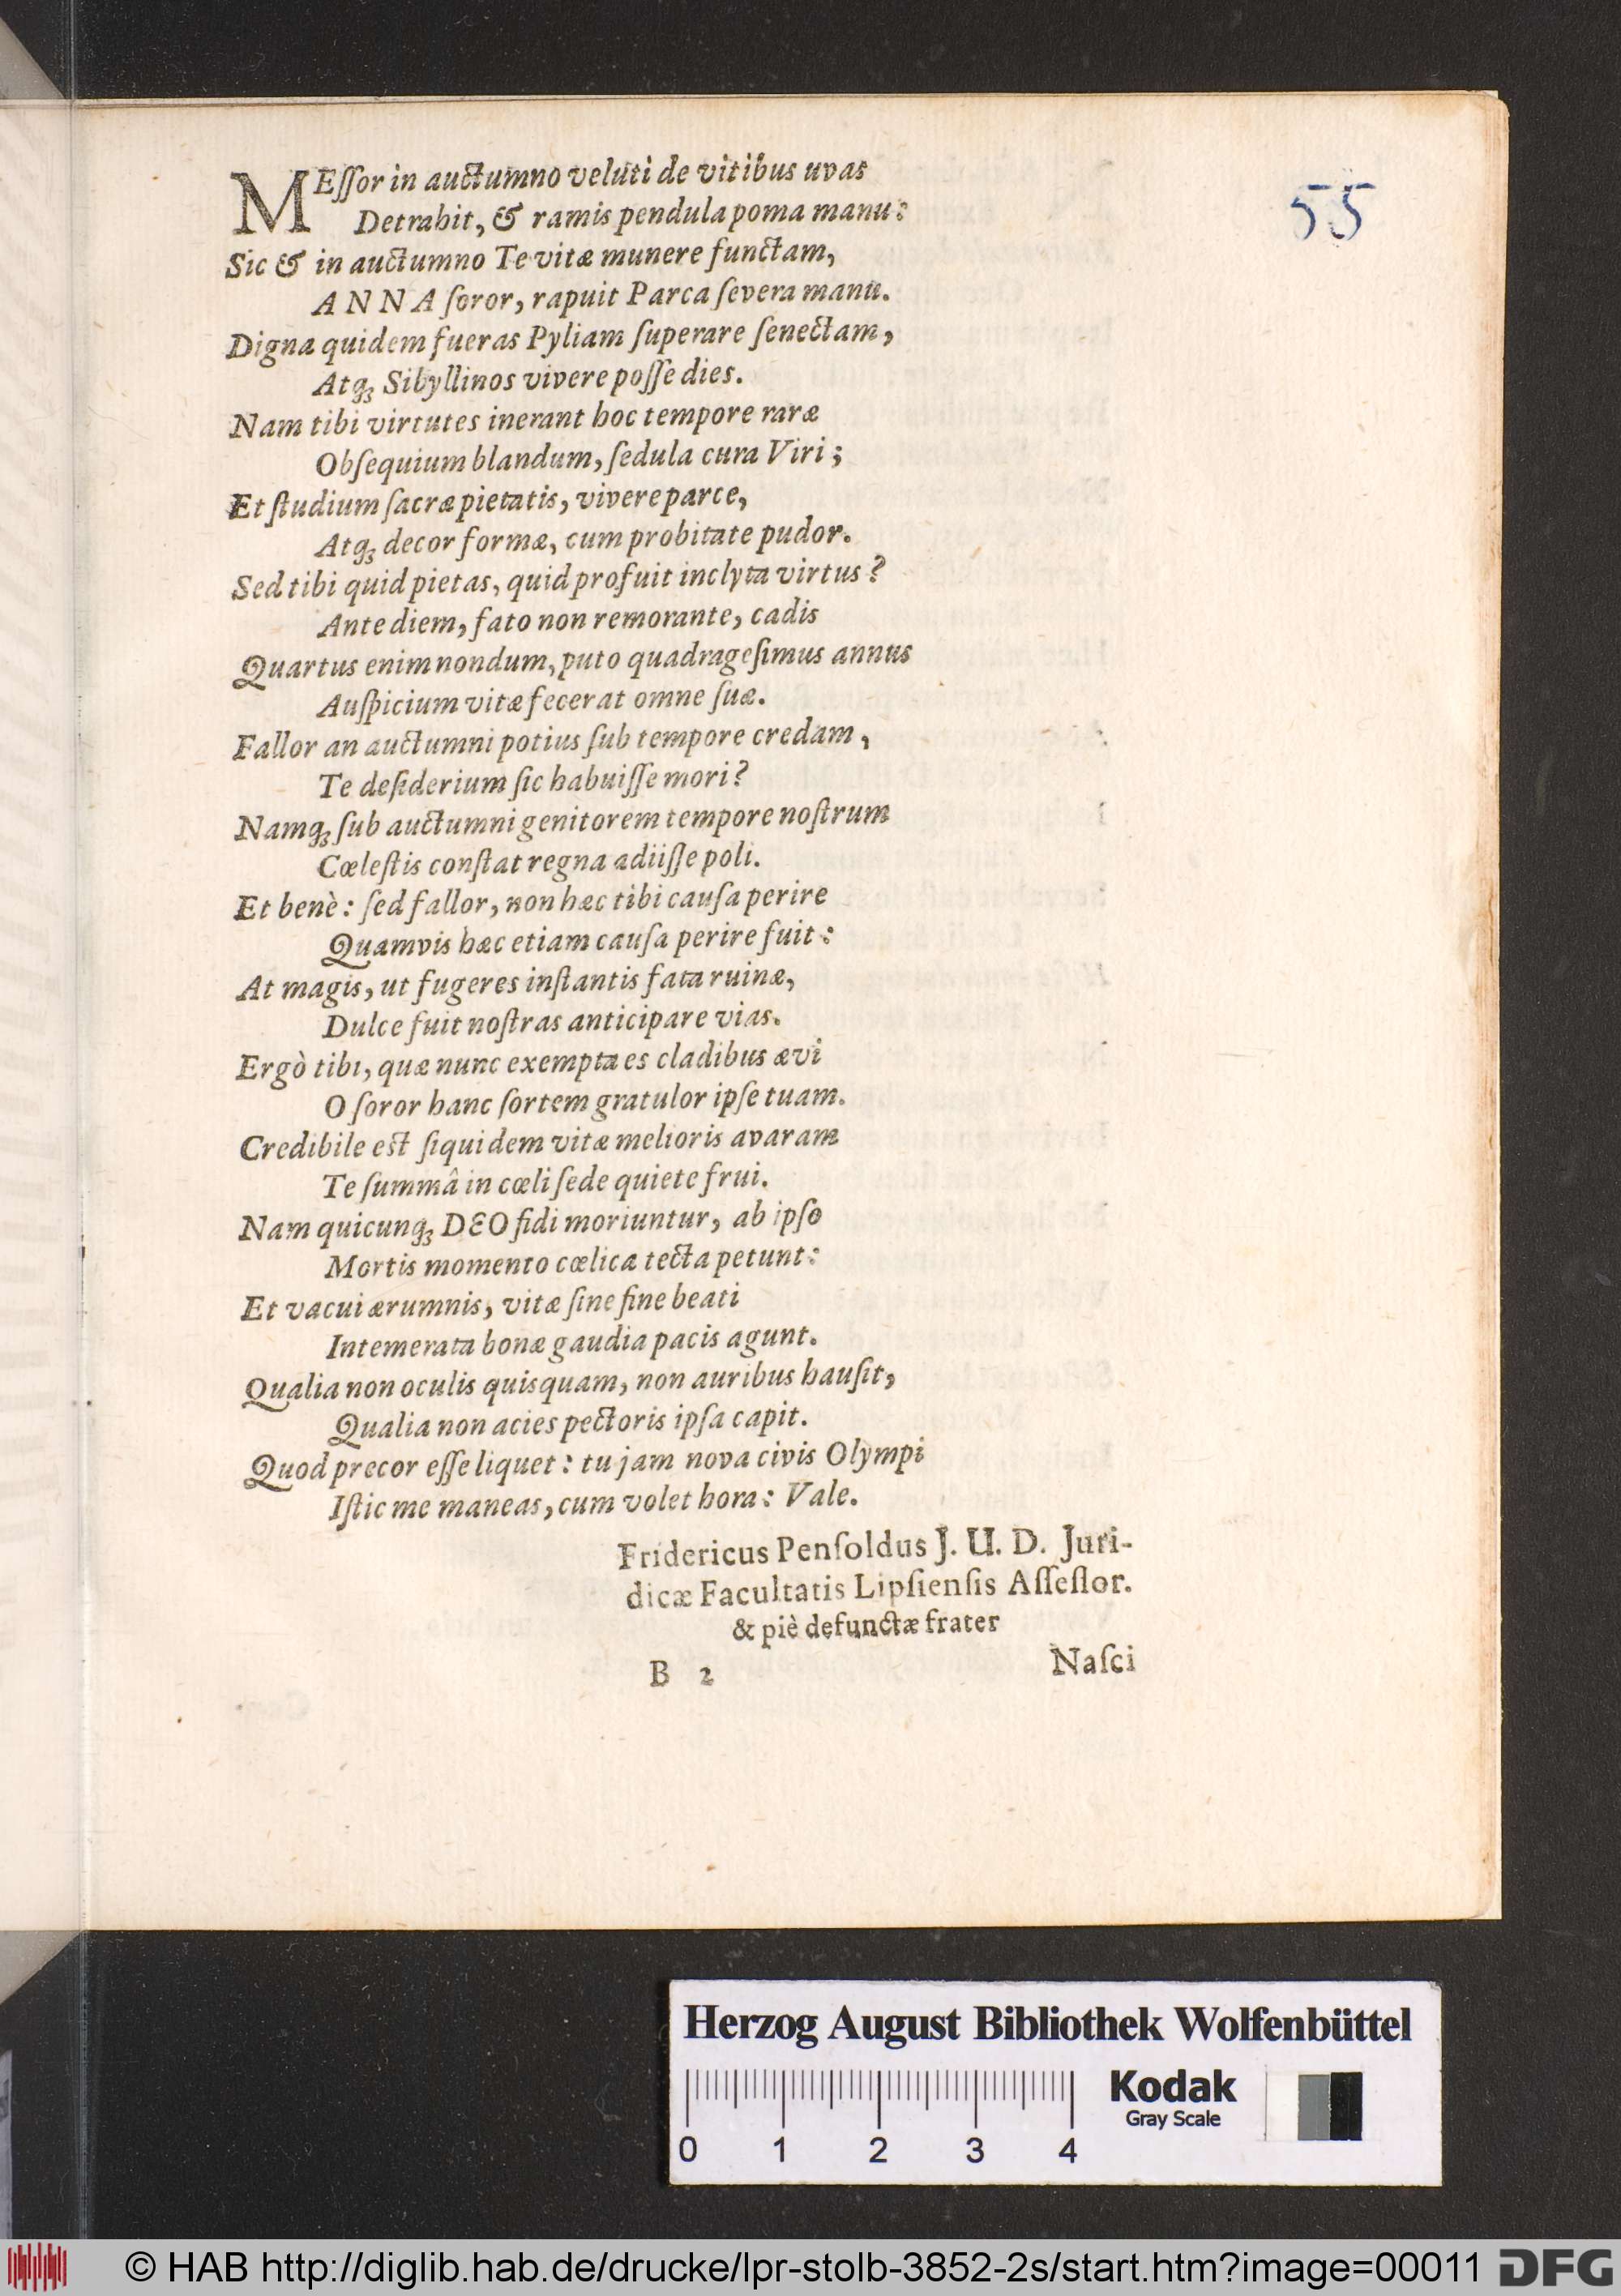 55
MEſſor in auctumno veluti de vitibus uvas
Detrahit, & ramis pendula poma manu:
Sic & in auctumno Te vitæ munere functam,
ANNA ſoror, rapuit Parca ſevera manu.
Digna quidem fueras Pyliam ſuperare ſenectam,
Atq́ꝫ Sibyllinos vivere poſſe dies.
Nam tibi virtutes inerant hoc tempore raræ
Obſequium blandum, ſedula cura Viri;
Et ſtudium ſacræ pietatis, vivere parce,
Atqꝫ decor formæ, cum probitate pudor.
Sed tibi quid pietas, quid profuit inclyta virtus?
Ante diem, fato non remorante, cadis
Quartus enim nondum, puto quadrageſimus annus
Auſpicium vitæ fecerat omne ſuæ.
Fallor an auctumni potius ſub tempore credam,
Te deſiderium ſic habuiſſe mori?
Namqꝫ ſub auctumni genitorem tempore noſtrum
Cœleſtis conſtat regna adiiſſe poli.
Et benè: ſed fallor, non hæc tibi cauſa perire
Quamvis hæc etiam cauſa perire fuit:
At magis, ut fugeres inſtantis fata ruinæ,
Dulce fuit noſtras anticipare vias.
Ergò tibi, quæ nunc exempta es cladibus ævi
O ſoror hanc ſortem gratulor ipſe tuam.
Credibile eſt ſiquidem vitæ melioris avaram
Te ſummâ in cœli ſede quiete frui.
Nam quicunqꝫ DEO fidi moriuntur, ab ipſo
Mortis momento cœlica tecta petunt:
Et vacui ærumnis, vitæ ſine fine beati
Intemerata bonæ gaudia pacis agunt.
Qualia non oculis quisquam, non auribus hauſit,
Qualia non acies pectoris ipſa capit.
Quod precor eſſe liquet: tu jam nova civis Olympi
Iſtic me maneas, cum volet hora: Vale.
Fridericus Penſoldus J. U. D. Juri-
dicæ Facultatis Lipſienſis Aſſeſſor.
& piè defunctæ frater
B 2 Naſci
Herzog August Bibliothek Wolfenbüttel
Kodak
Gray Scale
0 1 2 3 4
© HAB http://diglib.hab.de/drucke/lpr-stolb-3852-2s/start.htm?image=00011 DFG